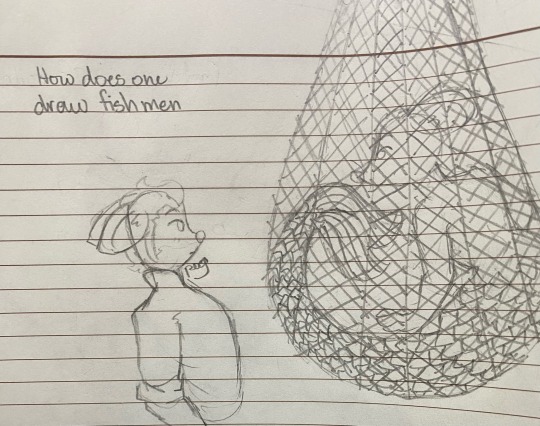 How does one
draw fishmen